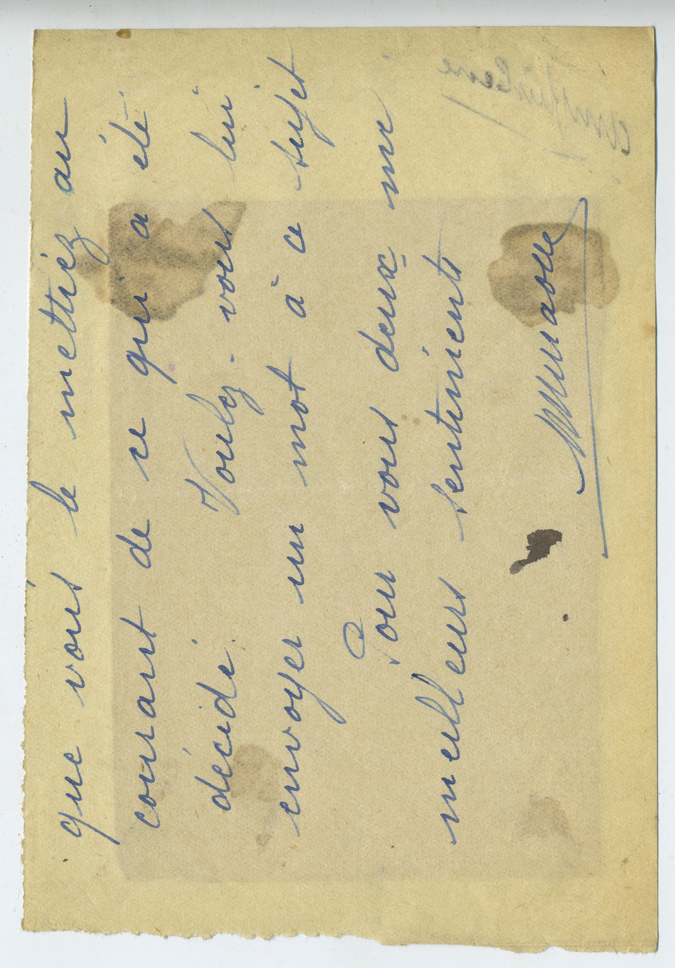 que vous le mettiez au
courant de ce qui a été
décidé. Voulez-vous lui
envoyer un mot à ce sujet
Pour vous deux me
meilleurs sentiments